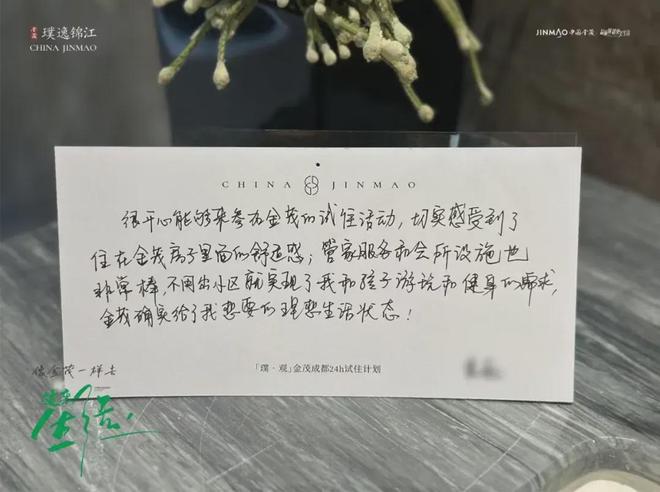 璞逸锦江
CHINA JINMAO
JINMAO 中国金茂
CHINA JINMAO
很开心能够来参加金茂的试住活动，切实感受到了
住在金茂房子里面的舒适感；管家服务和会所设施也
非常棒 不用出小区就实现了我和孩子游玩和健身的需求，
金茂确实给了我想要的理想生活状态！
「璞·观」金茂成都24h试住计划
像金茂一样去
生活